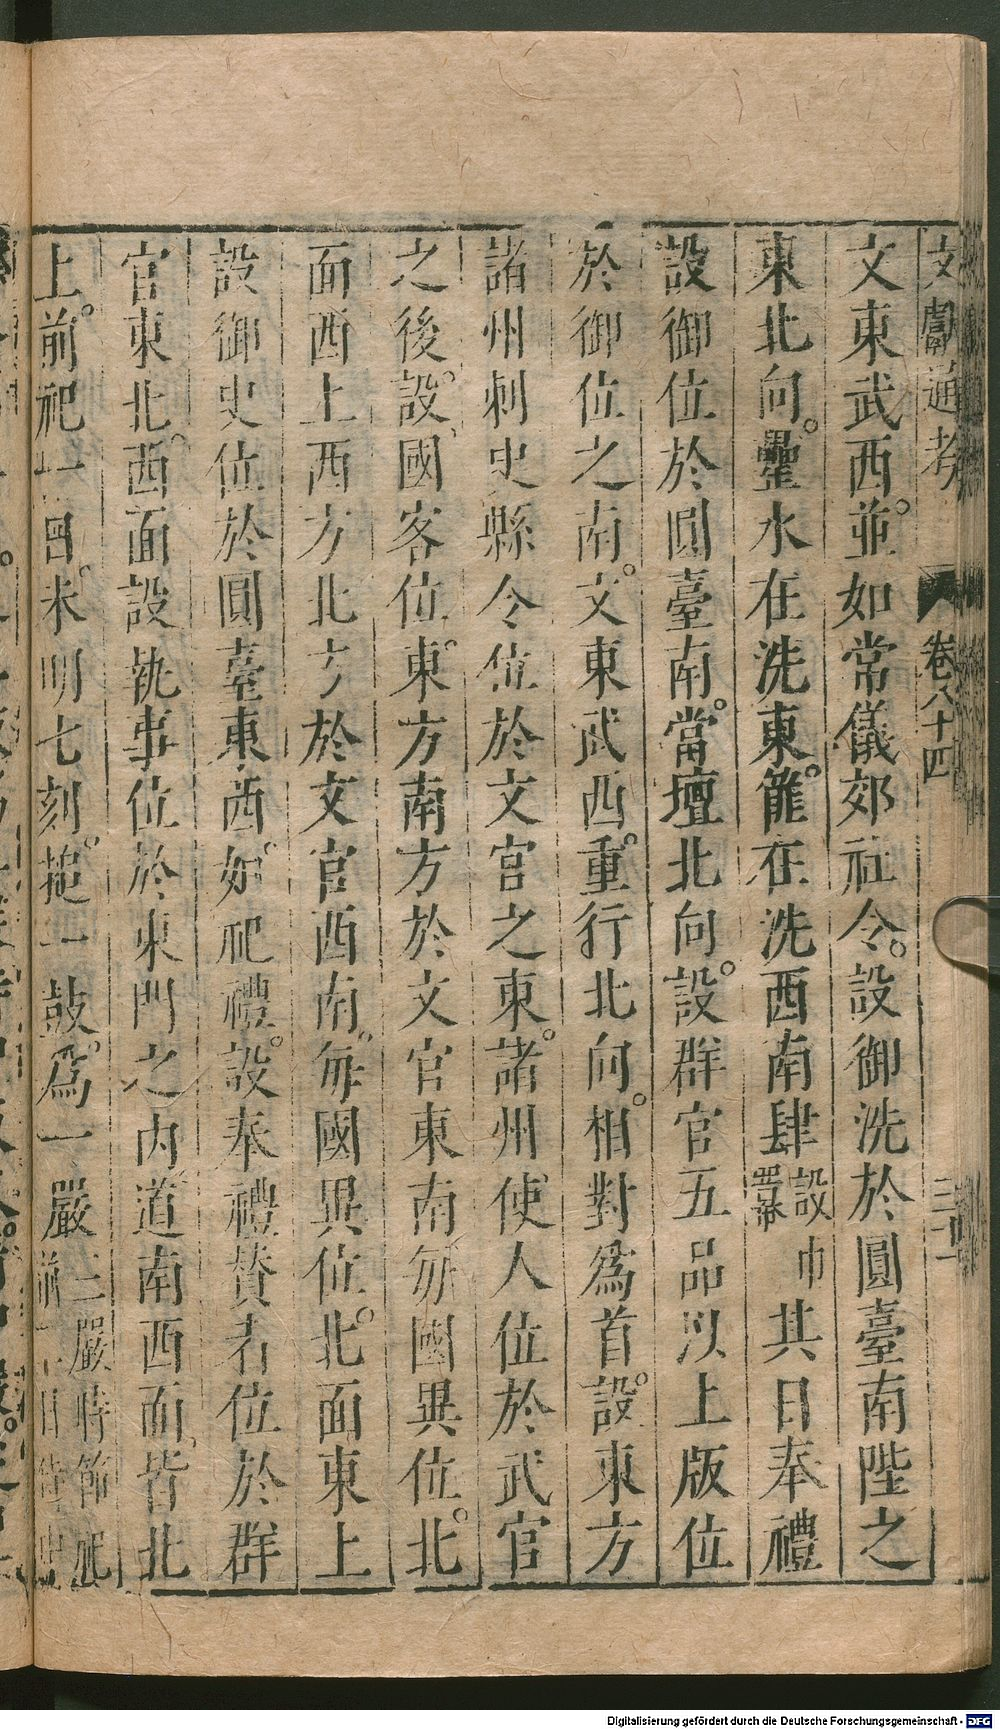 文獻通考 卷八十四
文東武西並如常儀郊社令設御洗於圓臺南陛之
東北向罍水在洗東篚在洗西南肆設巾羃其日奉禮
設御位於圓臺南當壇北向設群官五品以上版位
於御位之南文東武西重行北向相對爲首設東方
諸州刺史縣令位於文官之東諸州使人位於武官
之後設國客位東方南方於文官東南每國異位北
面西上西方北方於文官西南每國異位北面東上
設御史位於圓臺東西如祀禮設奉禮贊者位於群
官東北西面設執事位於東門之內道南西面皆北
上前祀一日未明七刻搥一鼓爲一嚴三嚴時節祀前一日侍中
Digitalisierung gefördert durch die Deutsche Forschungsgemeinschaft - DFG